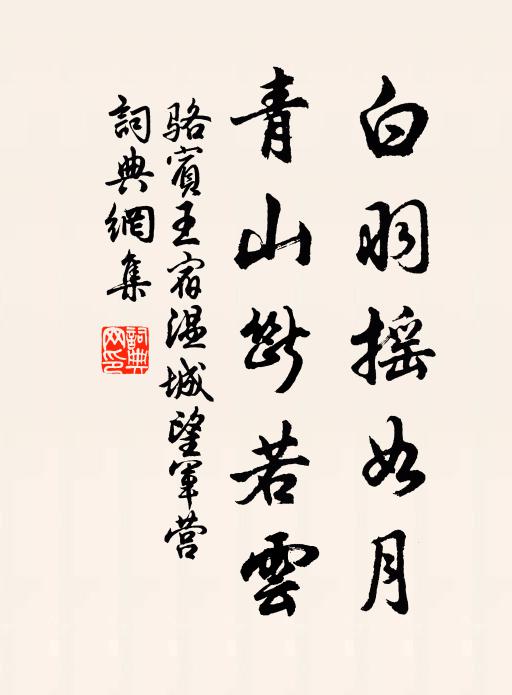 白羽摇如月
青山斷若雲
骆賓王宿温城望軍营
詞典網集
詞典
网印